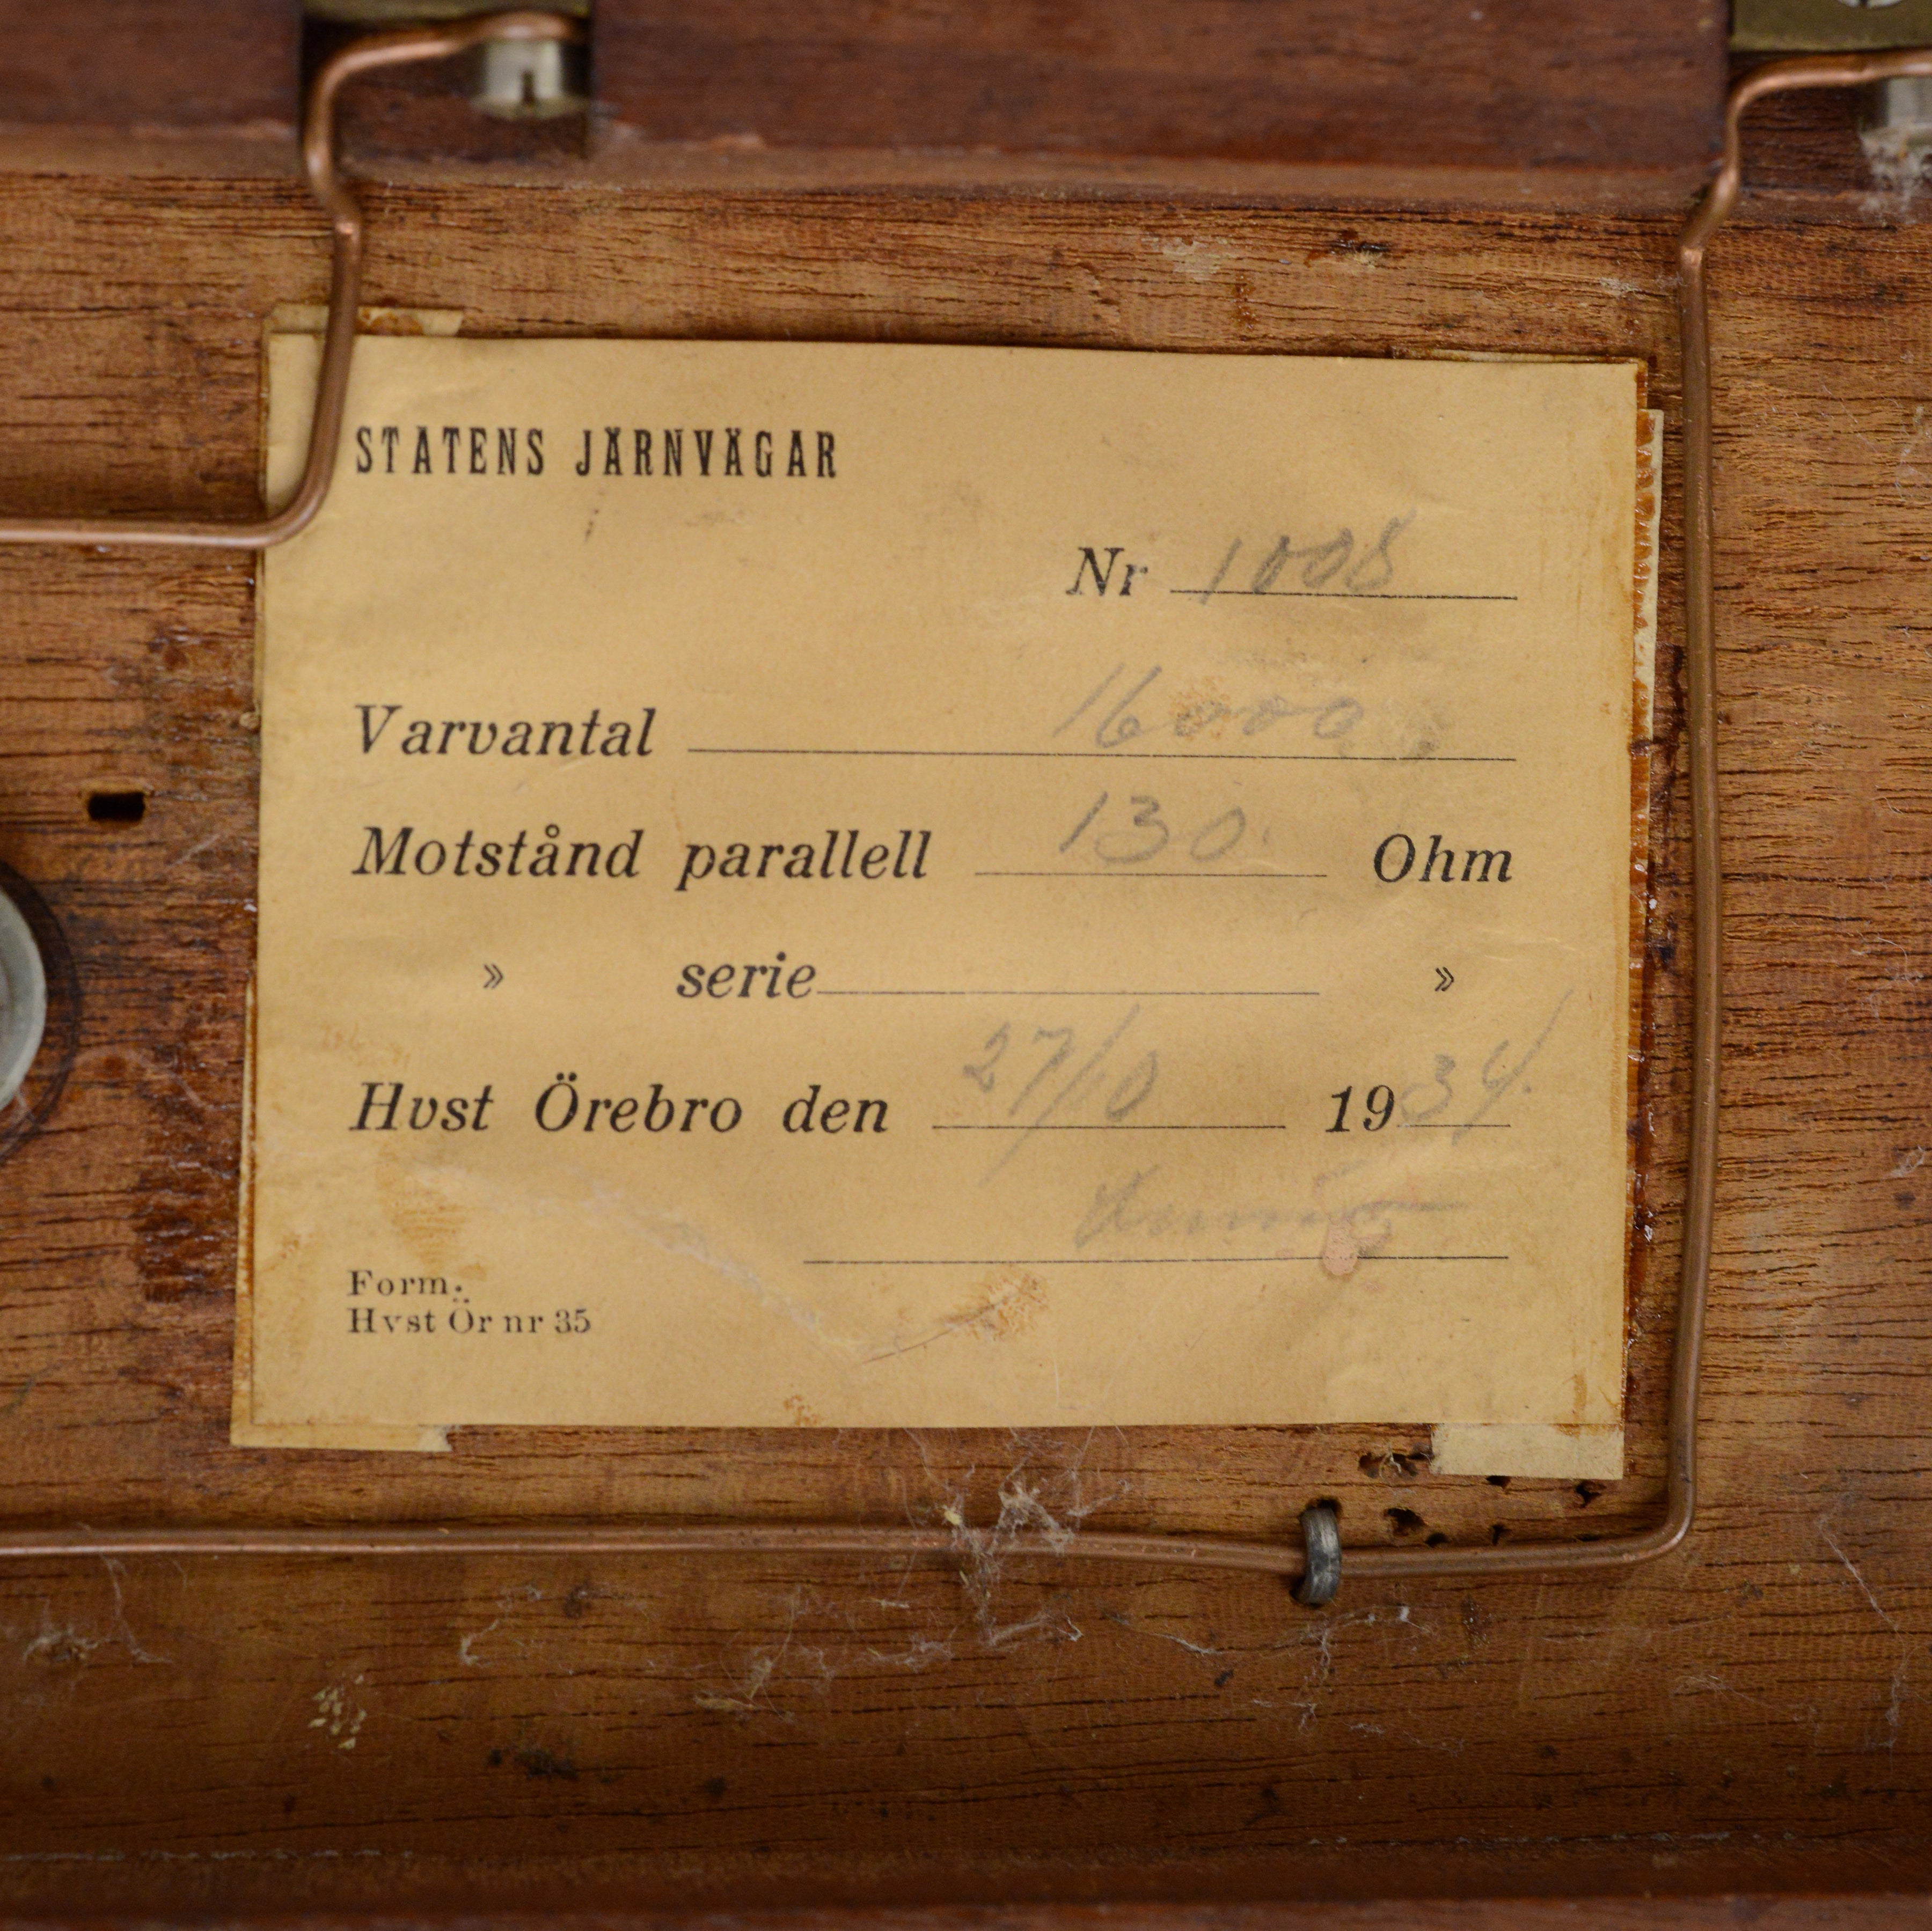 STATENS JÄRNVÄGAR
Nr 1008
Varvantal 16000
Motstånd parallell 130. Ohm
» serie »
Hvst Örebro den 27/10 1934.
Form.
Hvst Ör nr 35